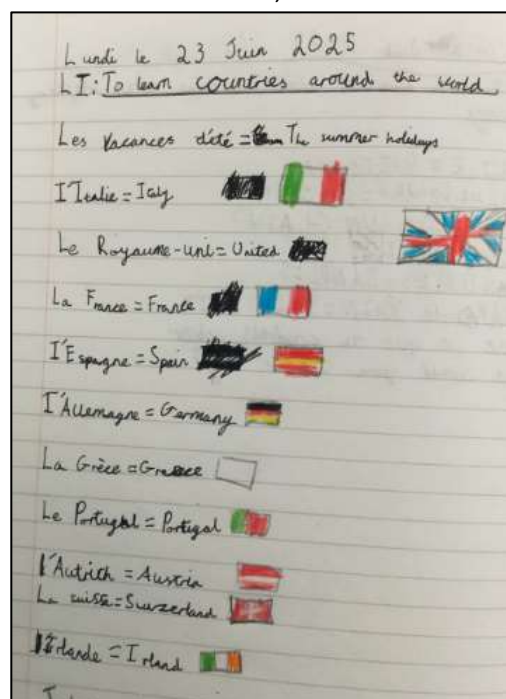 Lundi le 23 Juin 2025
LI: To learn countries around the world
Les Vacances d'été = The summer holidays
I'Italie = Italy
Le Royaume-uni = United
La France = France
I'Espagne = Spain
I'Allemagne = Germany
La Grèce = Greece
Le Portugal = Portigal
l'Autrith = Austria
La suisse = Swizerland
Irlande = Irland